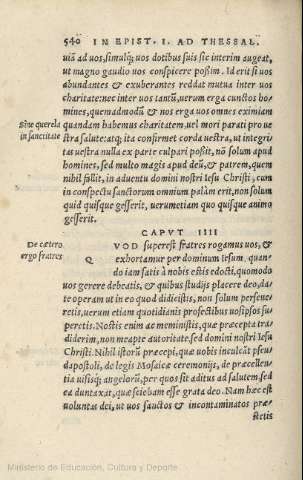 540 IN EPIST. I. AD THESSAL.
uiã ad uos, simulq́; uos dotibus suis sic interim augeat,
ut magno gaudio uos conspicere possim. Id erit si uos
abundantes & exuberantes reddat mutua inter uos
charitate: nec inter uos tantũ, uerum erga cunctos ho-
mines, quemadmodũ & nos erga uos omnes eximiam
Sine querela quandam habemus charitatem, uel mori parati pro ue
in sanctitate stra salute: atq; ita confirmet corda uestra, ut integri-
tas uestra nulla ex parte culpari possit, nõ solum apud
homines, sed multo magis apud deũ, & patrem, quem
nihil fallit, in aduentu domini nostri Iesu Christi, cum
in conspectu sanctorum omnium palàm erit, non solum
quid quisque gesserit, uerumetiam quo quisque animo
gesserit.
CAPVT IIII
De cætero QVOD superest fratres rogamus uos, &
ergo fratres exhortamur per dominum Iesum, quan-
do iam satis à nobis estis edocti, quomodo
uos gerere debeatis, & quibus studijs placere deo, da-
te operam ut in eo quod didicistis, non solum perseue-
retis, uerum etiam quotidianis profectibus uosipsos su
peretis. Nostis enim ac meministis, quæ præcepta tra-
diderim, non meapte autoritate, sed domini nostri Iesu
Christi. Nihil istorũ præcepi, quæ uobis inculcãt pseu-
dapostoli, de legis Mosaicæ ceremonijs, de præcellen-
tia uisisq; angelorũ, per quos sit aditus ad salutem, sed
ea duntaxat, quæ sciebam esse grata deo. Nam hæc est
uoluntas dei, ut uos sanctos & incontaminatos præ-
stetis
Ministerio de Educación, Cultura y Deporte